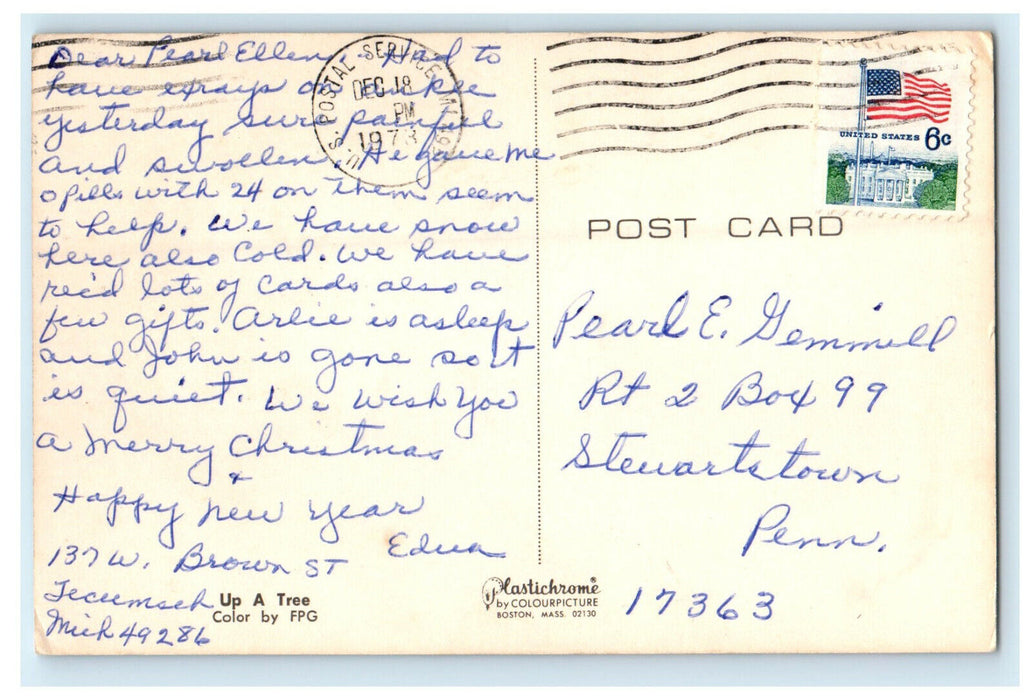 Dear Pearl Ellen Had to
have xrays of knee
yesterday sure painful
and swollen. He gave me
pills with 24 on them seem
to help. We have snow
here also Cold. We have
rec'd lots of cards also a
few gifts. Arlie is asleep
and John is gone so it
is quiet. We wish you
a Merry Christmas
&
Happy New Year
Edna
137 W. Brown ST
Tecumseh
Mich 49286
Up A Tree
Color by FPG
U.S. POSTAL SERVICE
DEC 18
PM
1973
UNITED STATES 6c
POST CARD
Pearl E. Gemmill
Rt 2 Box 99
Stewartstown
Penn.
17363
Plastichrome®
by COLOURPICTURE
BOSTON, MASS. 02130